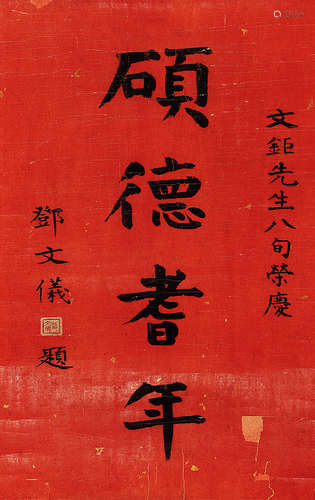 文鉅先生八旬榮慶
碩德耆年
鄧文儀
題